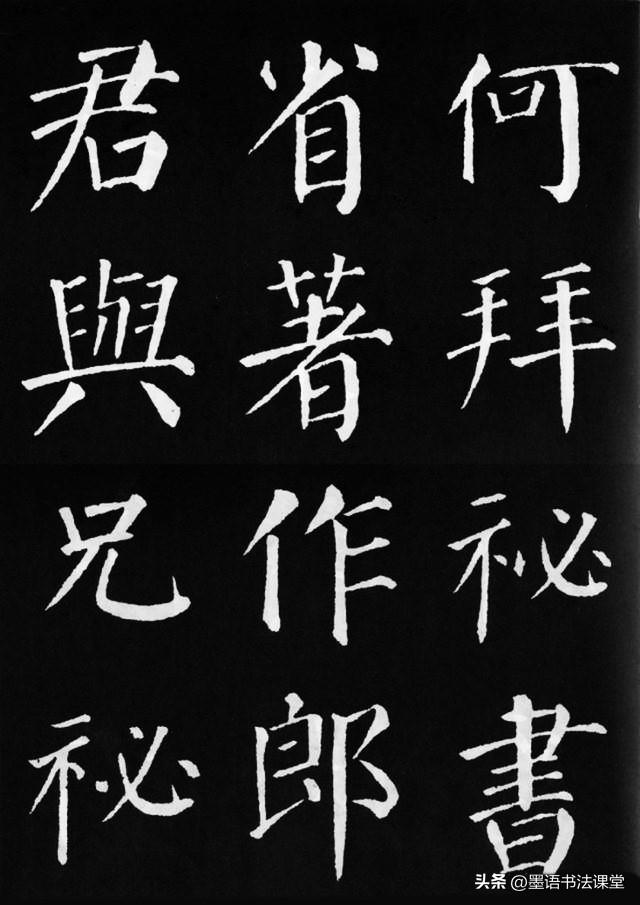 何拜祕書
省著作郎
君與兄祕
头条 @墨语书法课堂